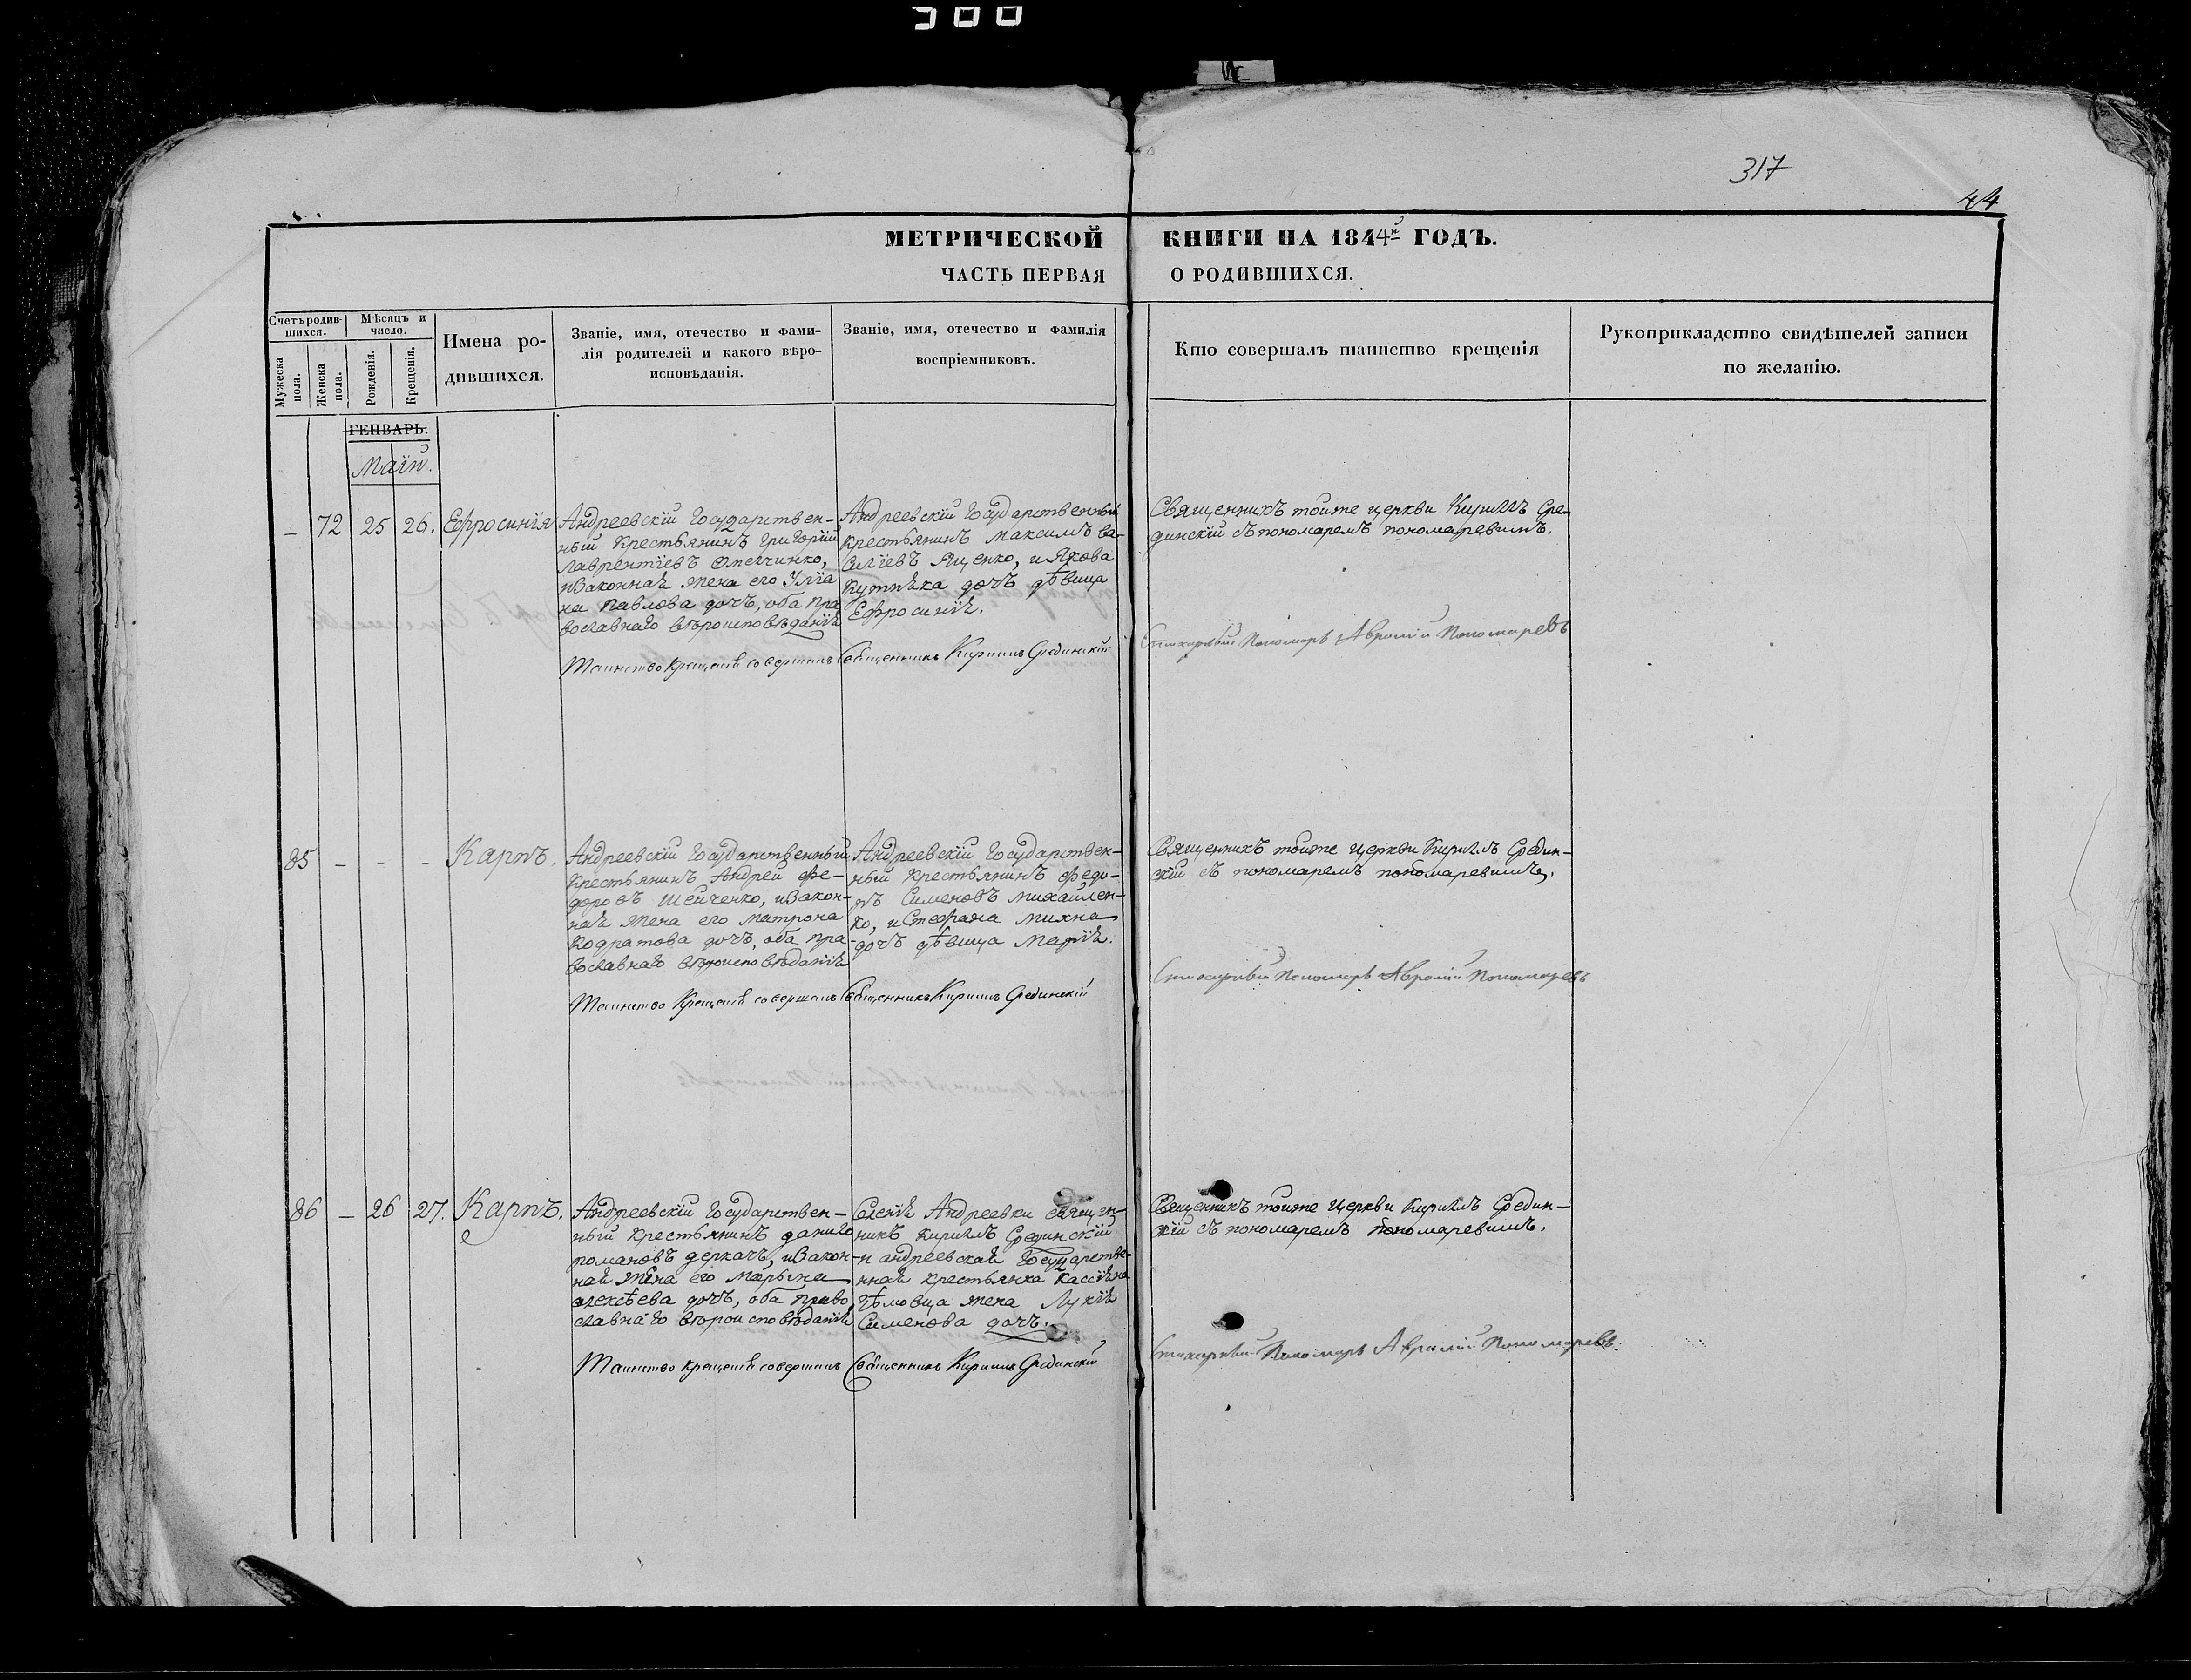 300
317
44
МЕТРИЧЕСКОЙ КНИГИ НА 1844й ГОДЪ.
ЧАСТЬ ПЕРВАЯ О РОДИВШИХСЯ.
Счетъ родив-
шихся.
Мужеска
пола.
Женска
пола.
Мѣсяцъ и
число.
Рожденія.
Крещенія.
Имена ро-
дившихся.
Званіе, имя, отечество и фами-
лія родителей и какого вѣро-
исповѣданія.
Званіе, имя, отечество и фамилія
воспріемниковъ.
Кто совершалъ таинство крещенія
Рукоприкладство свидѣтелей записи
по желанію.
ГЕНВАРЬ.
Маій.
– 72 25 26. Ефросинія
Андреевскій Государствен-
ный Крестьянинъ Григорій
Лаврентіевъ
изаконная жена его Улія
на Павлова дочъ, оба пра
вославнаго вѣроисповѣданія
Андреевскій Государственный
Крестьянинъ Максимъ Ва-
силіевъ Яценко, и Якова
дочъ дѣвица
Ефросинія.
Таинство Крещенія совершалъ Священникъ Кириллъ Срединскій
Священникъ тойже церкви Кириллъ Сре-
динскій съ пономаремъ пономаревимъ.
Стихарный Пономарь Аврамій Пономаревъ
85 – – – Карпъ.
Андреевскій Государственный
Крестьянинъ Андрей Фе-
доровъ Шейченко, изакон-
ная жена его Матрона
Кодратова дочъ, оба пра-
вославнаго вѣроисповѣданія
Андреевскій Государствен-
ный Крестьянинъ Федо-
ръ Сименовъ Михайлен-
ко, и Стефана Михна
дочъ дѣвица Марія.
Таинство Крещенія совершалъ Священникъ Кириллъ Срединскій
Священникъ тойже церкви Кириллъ Средин-
скій съ пономаремъ пономаревимъ.
Стихарный Пономарь Аврамій Пономаревъ
86 – 26 27. Карпъ.
Андреевскій Государствен-
ный Крестьянинъ Данило
Романовъ Деркачъ, изакон-
ная жена его Марьяна
Алексѣева дочъ, оба право
славнаго вѣроисповѣданія
Селенія Андреевки Священ-
никъ Кириллъ Срединскій
и андреевская Государстве-
нная Крестьянка Кассіяна
жена Лукія
Сименова дочъ.
Таинство крещенія совершалъ Священникъ Кириллъ Срединскій
Священникъ тойже Церкви Кириллъ Средин-
скій съ пономаремъ пономаревимъ.
Стихарный Пономарь Аврамій Пономаревъ